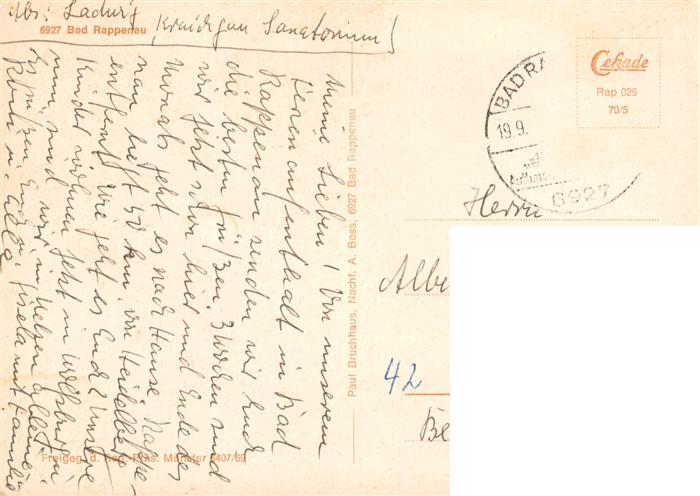 Abs: Ladwig
6927 Bad Rappenau (Kraichgau Sanatorium)
Meine Lieben! Von unserem
Ferienaufenthalt in Bad
Rappenau senden wir Euch
die besten Grüßen. 3 Wochen sind
wir jetzt schon hier und Ende des
Monats geht es nach Hause. Rappe-
nau liegt 50 km. von Heidelberg
entfernt. Wie geht es Euch? Unsere
Kinder wohnen jetzt in
nun, und wir in
Es grüßen Euch Gisela mit Familie
Käthe u.
Paul Bruchhaus, Nachf. A. Boss, 6927 Bad Rappenau
Freigeg. d. Reg.-Präs. Münster 5407/69
Cekade
Rap 026
70/5
BAD RA
19.9.
6927
Herrn
Albe
42
Be